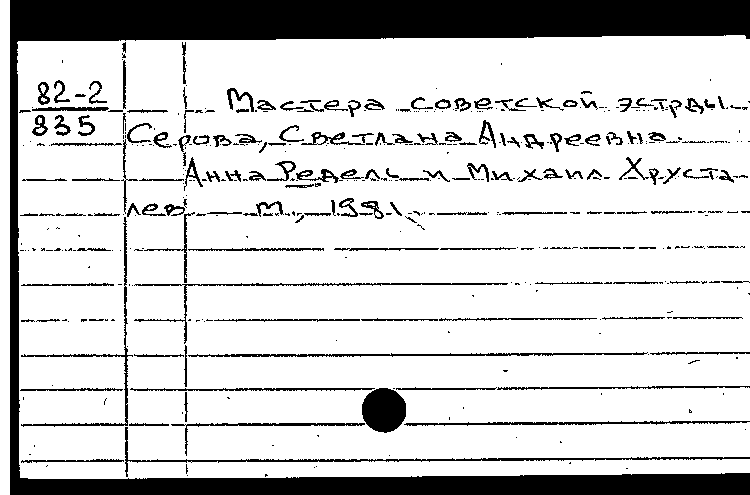 82-2
835
Мастера советской эстрды
Серова, Светлана Андреевна.
Анна Редель и Михаил Хруста-
лев м., 1981.